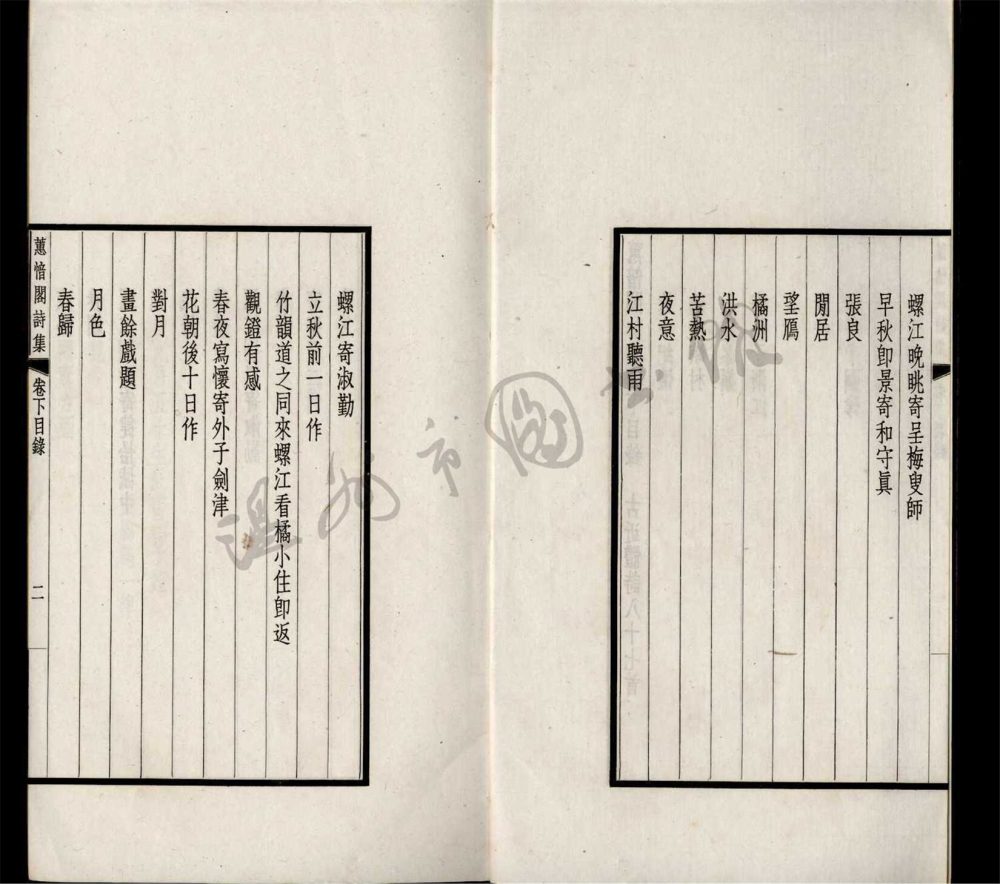 螺江晚眺寄呈梅叟師
早秋卽景寄和守眞
張良
閒居
望鴈
橘洲
洪水
苦熱
夜意
江村聽雨
螺江寄淑勤
立秋前一日作
竹韻道之同來螺江看橘小住卽返
觀鐙有感
春夜寫懷寄外子劍津
花朝後十日作
對月
畫餘戲題
月色
春歸
蕙愔閣詩集
卷下目錄
二
温州市圖